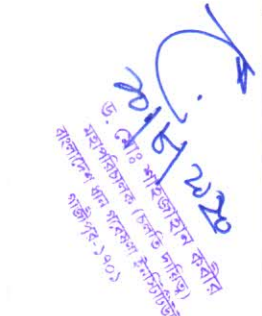 ২০/৮/২০২০
ড. মোঃ শাহজাহান কবীর
মহাপরিচালক (চলতি দায়িত্ব)
বাংলাদেশ ধান গবেষণা ইনস্টিটিউট
গাজীপুর-১৭০১